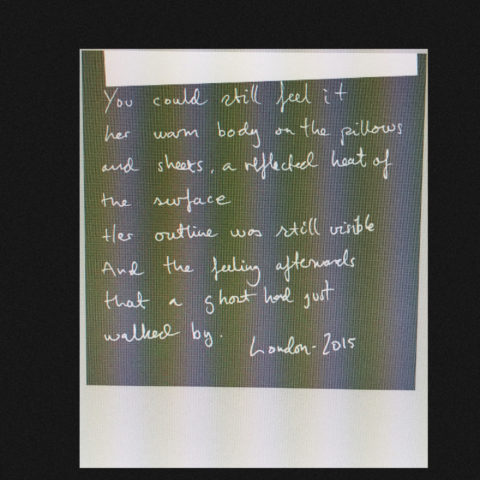 You could still feel it
her warm body on the pillows
and sheets, a reflected heat of
the surface
Her outline was still visible
And the feeling afterwards
that a ghost had just
walked by.
London-2015